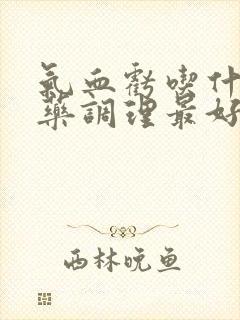 氣血虧喫什
藥調理最好
西林晚鱼